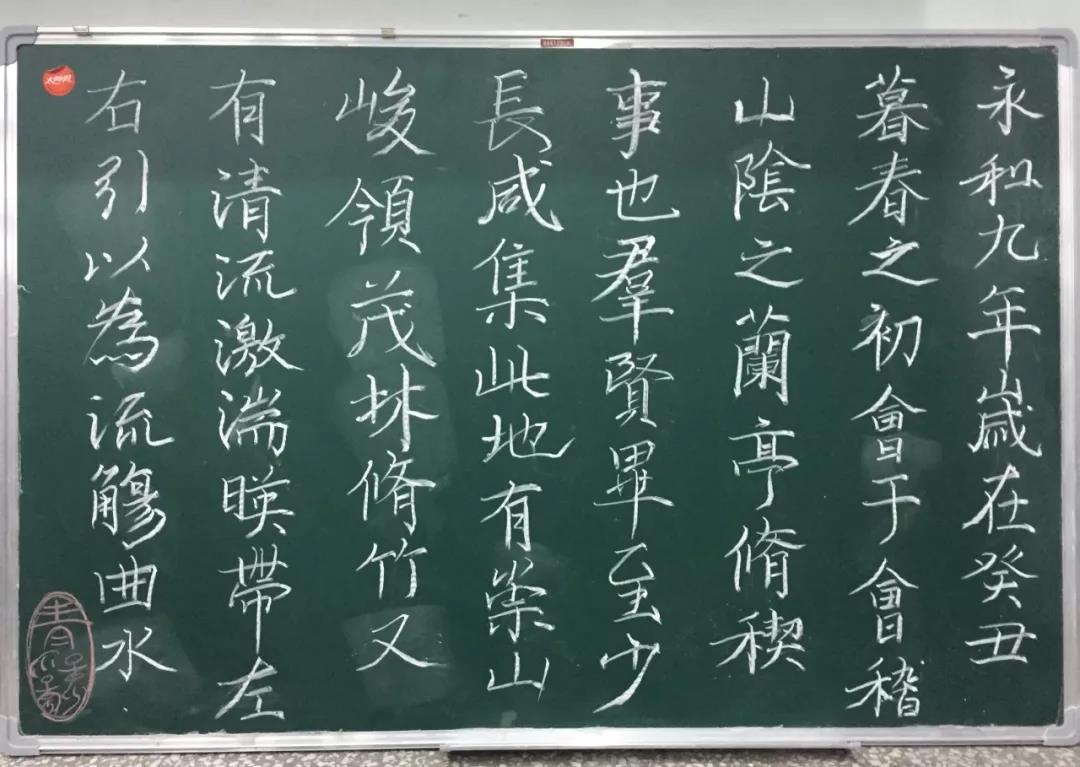 永和九年歲在癸丑
暮春之初會于會稽
山陰之蘭亭脩稧
事也羣賢畢至少
長咸集此地有崇山
峻領茂林脩竹又
有清流激湍暎帶左
右引以為流觴曲水